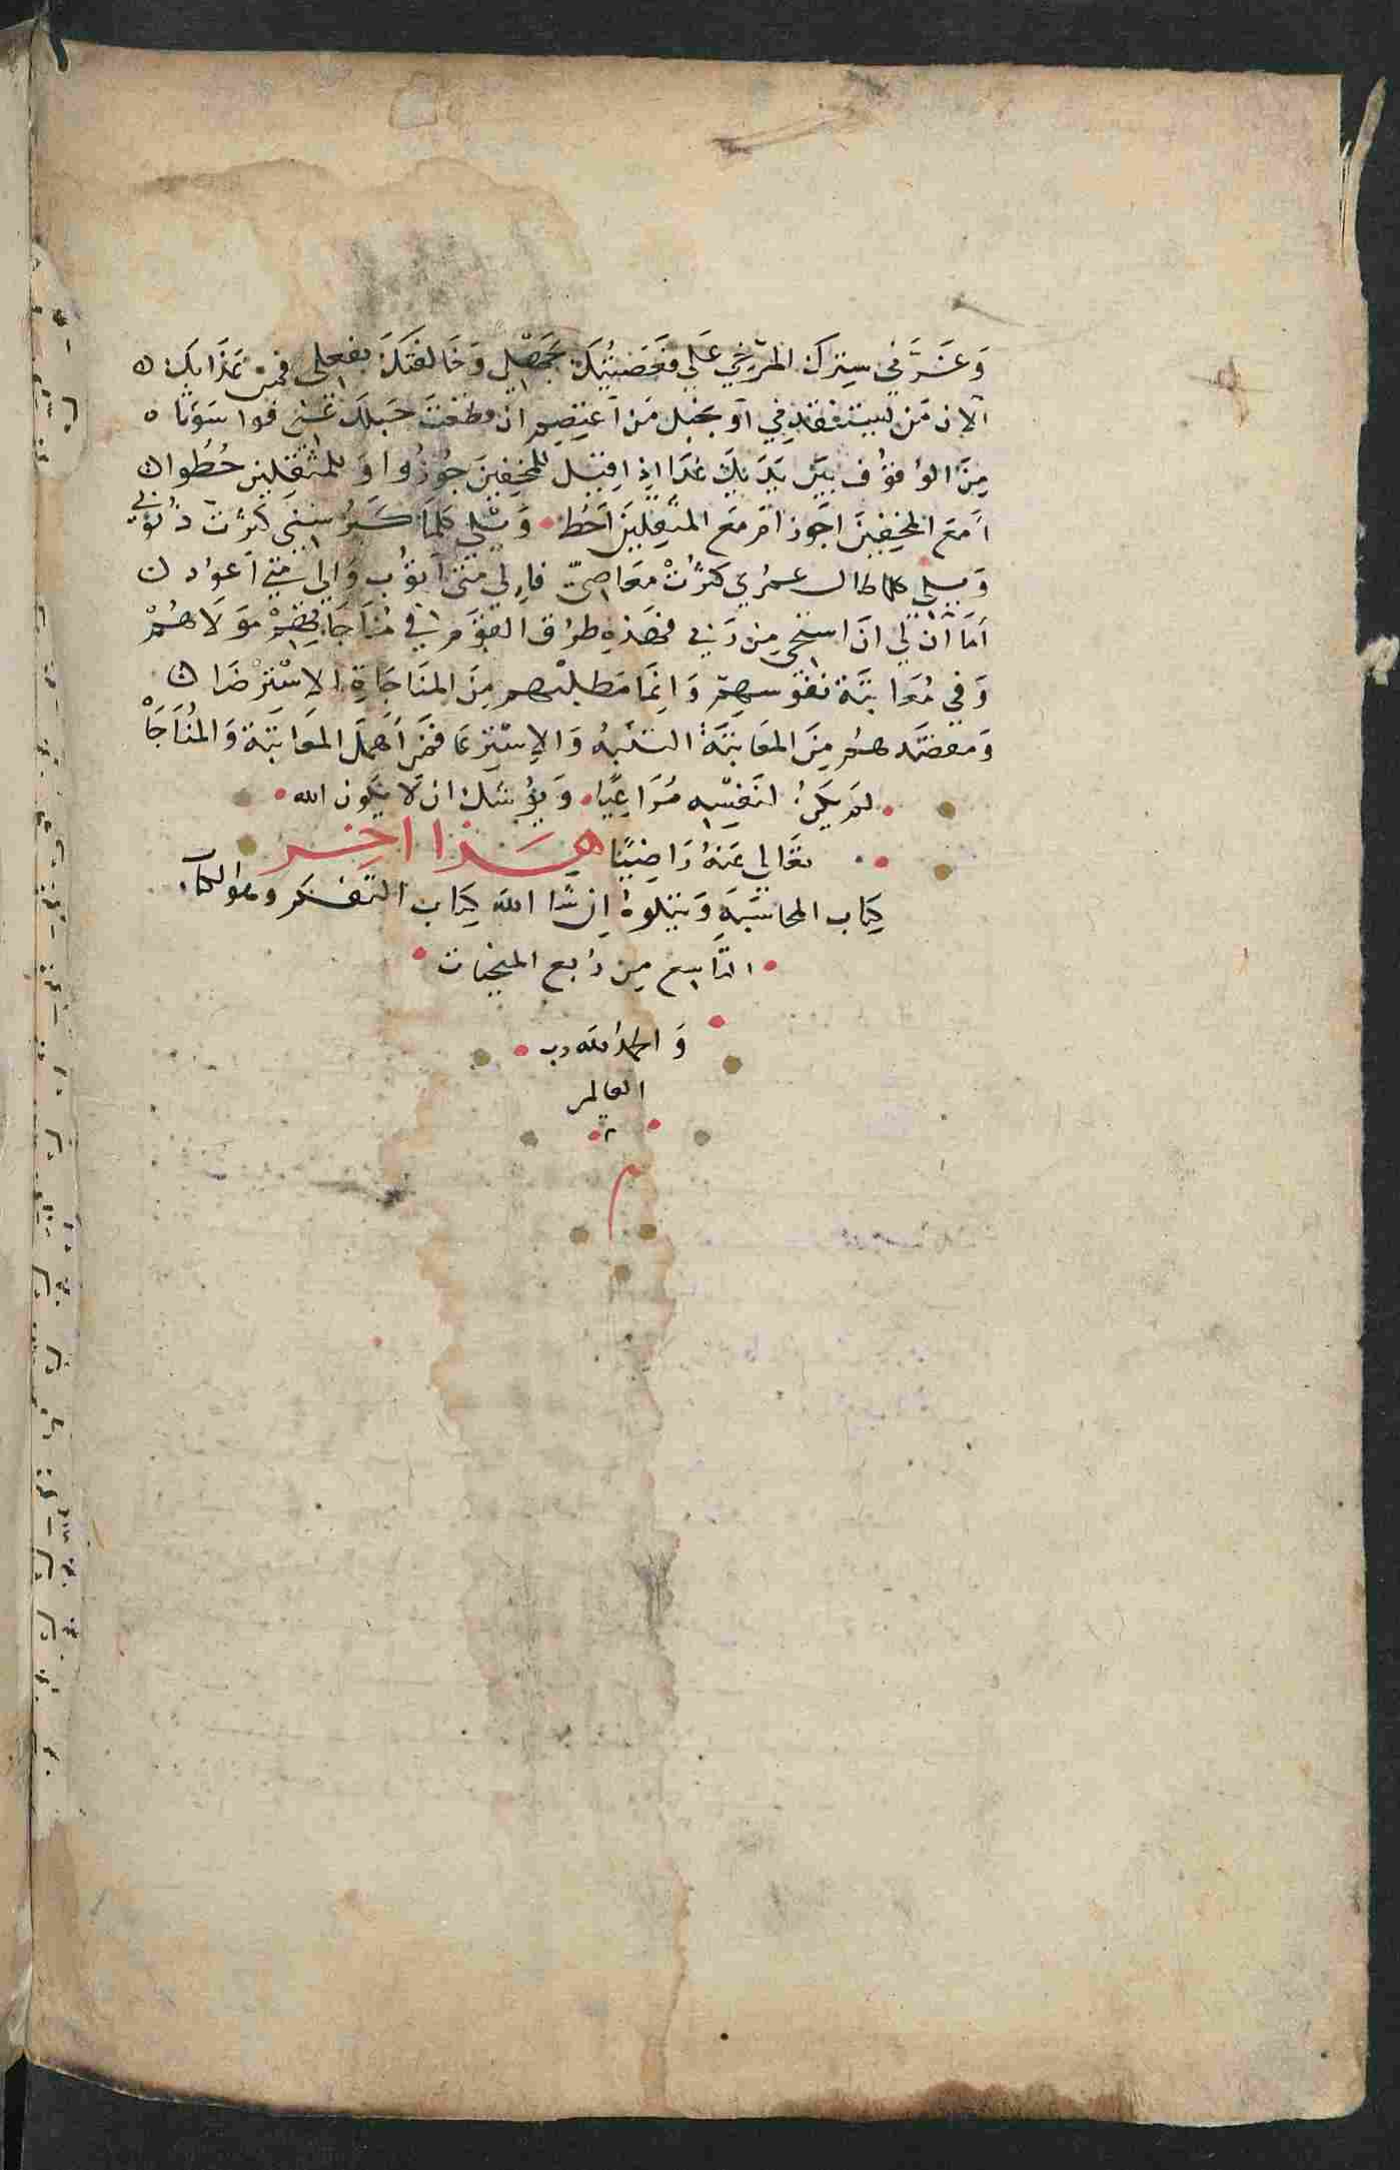 وَغَرَّنِي سِتْرُكَ المُرْخَى عَلَيَّ فعَصَيْتُكَ بجَهْلِي وَخَالَفْتُكَ بِفعْلِي فمِنْ عَذَابِكَ
الآنَ مَن يستنقذني أو بحَبْلِ مَن أعْتَصِم ان قطعْتَ حَبلَكَ عَنّي فوا سَوْتَاه
مِنَ الوُقوُفِ بَيْنَ يَدَيْكَ غدًا إذا قِيْلَ للمُخِفِينَ جُوزُوا وَللمُثْقِلِينَ حُطُّوا
أَمَعَ المُخِفِينَ أَجُوز أمْ مَعَ المُثقِلِينَ أَحُط وَيْلِي كلمَا كَبُرَ سِنّي كَثُرَت ذُنُوبي
وَيلي كلما طال عمُري كثُرَتْ مَعَاصِيَّ فإلى مَتَى أَتُوُبُ وَإلى مَتَى أعُوْد
أمَا آنَ لِي أنْ أستَحْي مِن رَبِّي فهَذِهِ طرُق القوَم في مُنَاجَاتِهِمْ مَوْلَاهُمْ
وَفي مُعَاتبَة نفُوسِهِمْ وَإنمَا مَطلبُهم مِنَ المنَاجَاةِ الإسْتِرْضَا
وَمقصَدهُم مِنَ المعَاتبَةَ التنْبِيْهُ وَالإسْتِرعَا فمَنْ أهمَلَ المعَاتبَة وَالمُنَاجَاةْ
لمْ يَكُن لنَفْسِهِ مُرَاعِيًا وَيُوشكُ ان لَا يَكُون الله
تعَالى عَنهُ رَاضِيًا هَذا اخر
كِتاب المحاسَبَهِ وَيَتلوهُ إن شَا اللهَ كِتاب التفَكر وهوالكتاب
التَّاسِع مِن رُبع المنجيات
وَالحمدُ لله رب
العالمين
م